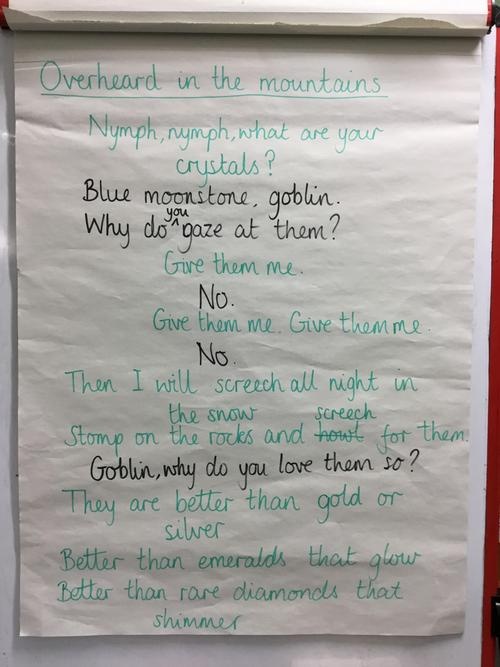 Overheard in the mountains
Nymph, nymph, what are your
crystals?
Blue moonstone, goblin.
Why do you gaze at them?
Give them me.
No.
Give them me. Give them me.
No.
Then I will screech all night in
the snow
Stomp on the rocks and howl screech for them.
Goblin, why do you love them so?
They are better than gold or
silver
Better than emeralds that glow
Better than rare diamonds that
shimmer